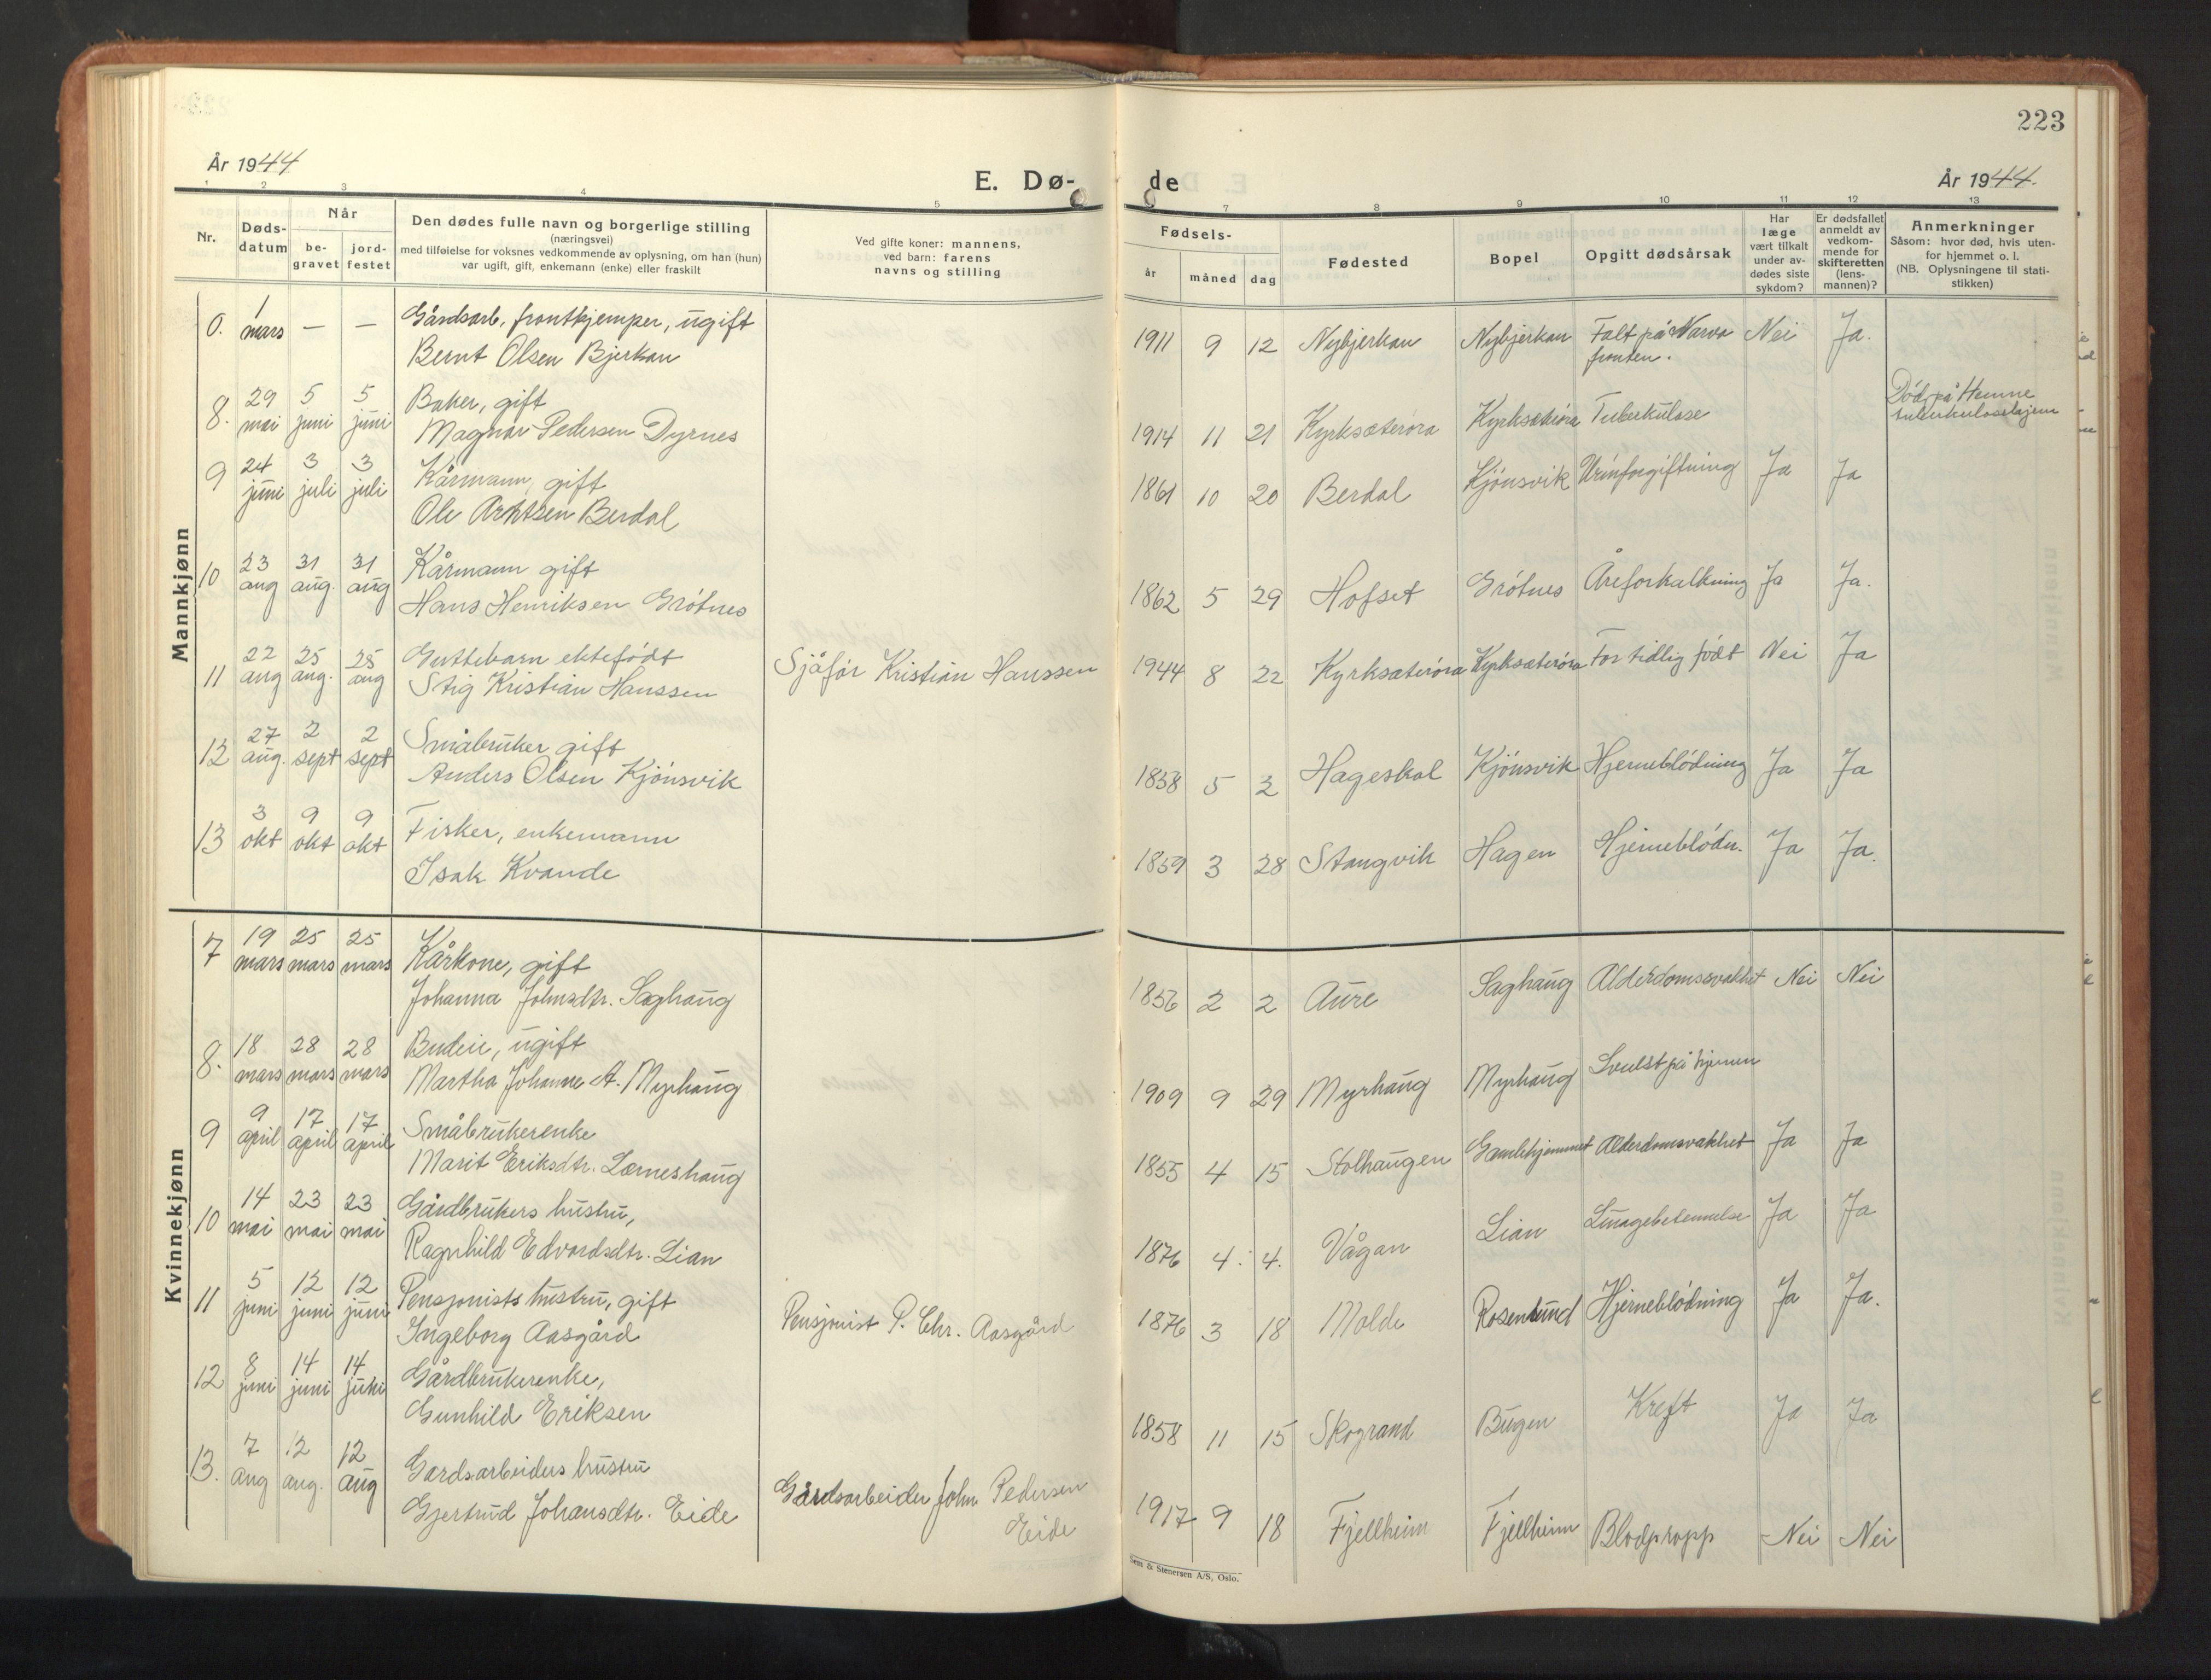 223
År 1944
E. Dø-
de
År 1944.
1 2 3 4 5
7 8 9 10 11 12 13
Nr.
Døds-
datum
Når
be-
gravet
jord-
festet
Den dødes fulle navn og borgerlige stilling
(næringsvei)
med tilføielse for voksnes vedkommende av oplysning, om han (hun)
var ugift, gift, enkemann (enke) eller fraskilt
Ved gifte koner: mannens,
ved barn: farens
navns og stilling
Fødsels-
år måned dag
Fødested
Bopel
Opgitt dødsårsak
Har
læge
vært tilkalt
under av-
dødes siste
sykdom?
Er dødsfallet
anmeldt av
vedkom-
mende for
skifteretten
(lens-
mannen)?
Anmerkninger
Såsom: hvor død, hvis uten-
for hjemmet o. l.
(NB. Oplysningene til stati-
stikken)
Mannkjønn
0. 1 mars — — Gårdsarb, frontkjemper, ugift
Bernt Olsen Bjerkan
1911 9 12 Nybjerkan Nybjerkan Falt på Narva Nei Ja.
fronten.
8. 29 mai 5 juni 5 juni Baker, gift
Magnar Pedersen Dyrnes
1914 11 21 Kyrksæterøra Kyrksæterøra Tuberkulose
Død på Hemne
tuberkulosehjem
9 24 juni 3 juli 3 juli Kårmann, gift
Ole Arntsen Berdal
1861 10 20 Berdal Kjønsvik Urinforgiftning Ja Ja
10 23 aug 31 aug. 31 aug Kårmann gift
Hans Henriksen Grøtnes
1862 5 29 Hofset Grøtnes Åreforkalkning Ja Ja.
11 22 aug 25 aug. 25 aug Guttebarn ektefødt
Stig Kristian Hanssen
Sjåfør Kristian Hanssen
1944 8 22 Kyrksæterøra Kyrksæterøra For tidlig født Nei Ja
12 27 aug. 2 sept 2 sept Småbruker gift
Anders Olsen Kjønsvik
1858 5 2 Hageskal Kjønsvik Hjerneblødning Ja Ja
13 3 okt 9 okt 9 okt Fisker, enkemann
Isak Kvande
1859 3 28 Stangvik Hagen Hjerneblødn. Ja Ja.
Kvinnekjønn
7 19 mars 25 mars 25 mars Kårkone, gift
Johanna Johnsdtr. Saghaug
1856 2 2 Aure Saghaug Alderdomssvakhet Nei Nei
8. 18 mars 28 mars 28 mars Budeie, ugift
Martha Johanne A. Myrhaug
1909 9 29 Myrhaug Myrhaug Svulst på hjernen
9 9 april 17 april 17 april Småbrukerenke
Marit Eriksdtr. Lerneshaug
1855 4 15 Stolhaugen Gamlehjemmet Alderdomsvakhet Ja Ja
10 14 mai 23 mai 23 mai Gårdbrukers hustru,
Ragnhild Edvardsdtr. Lian
1876 4. 4. Vågan Lian Lungebetennelse Ja Ja
11 5 juni 12 juni 12 juni Pensjonists hustru, gift
Ingeborg Aasgård
Pensjonist P. Chr. Aasgård
1876 3 18 Molde Rosenlund Hjerneblødning Ja Ja.
12 8 juni 14 juni 14 juni Gårdbrukerenke,
Gunhild Eriksen
1858 11 15 Skogrand Bugen Kreft Ja Ja
13. 7 aug 12 aug. 12 aug Gardsarbeiders hustru
Gjertrud Johansdtr. Eide
Gårdsarbeider John Pedersen
Eide
1917 9 18 Fjellheim Fjellheim Blodpropp Nei Nei
Sem & Stenersen A/S, Oslo.